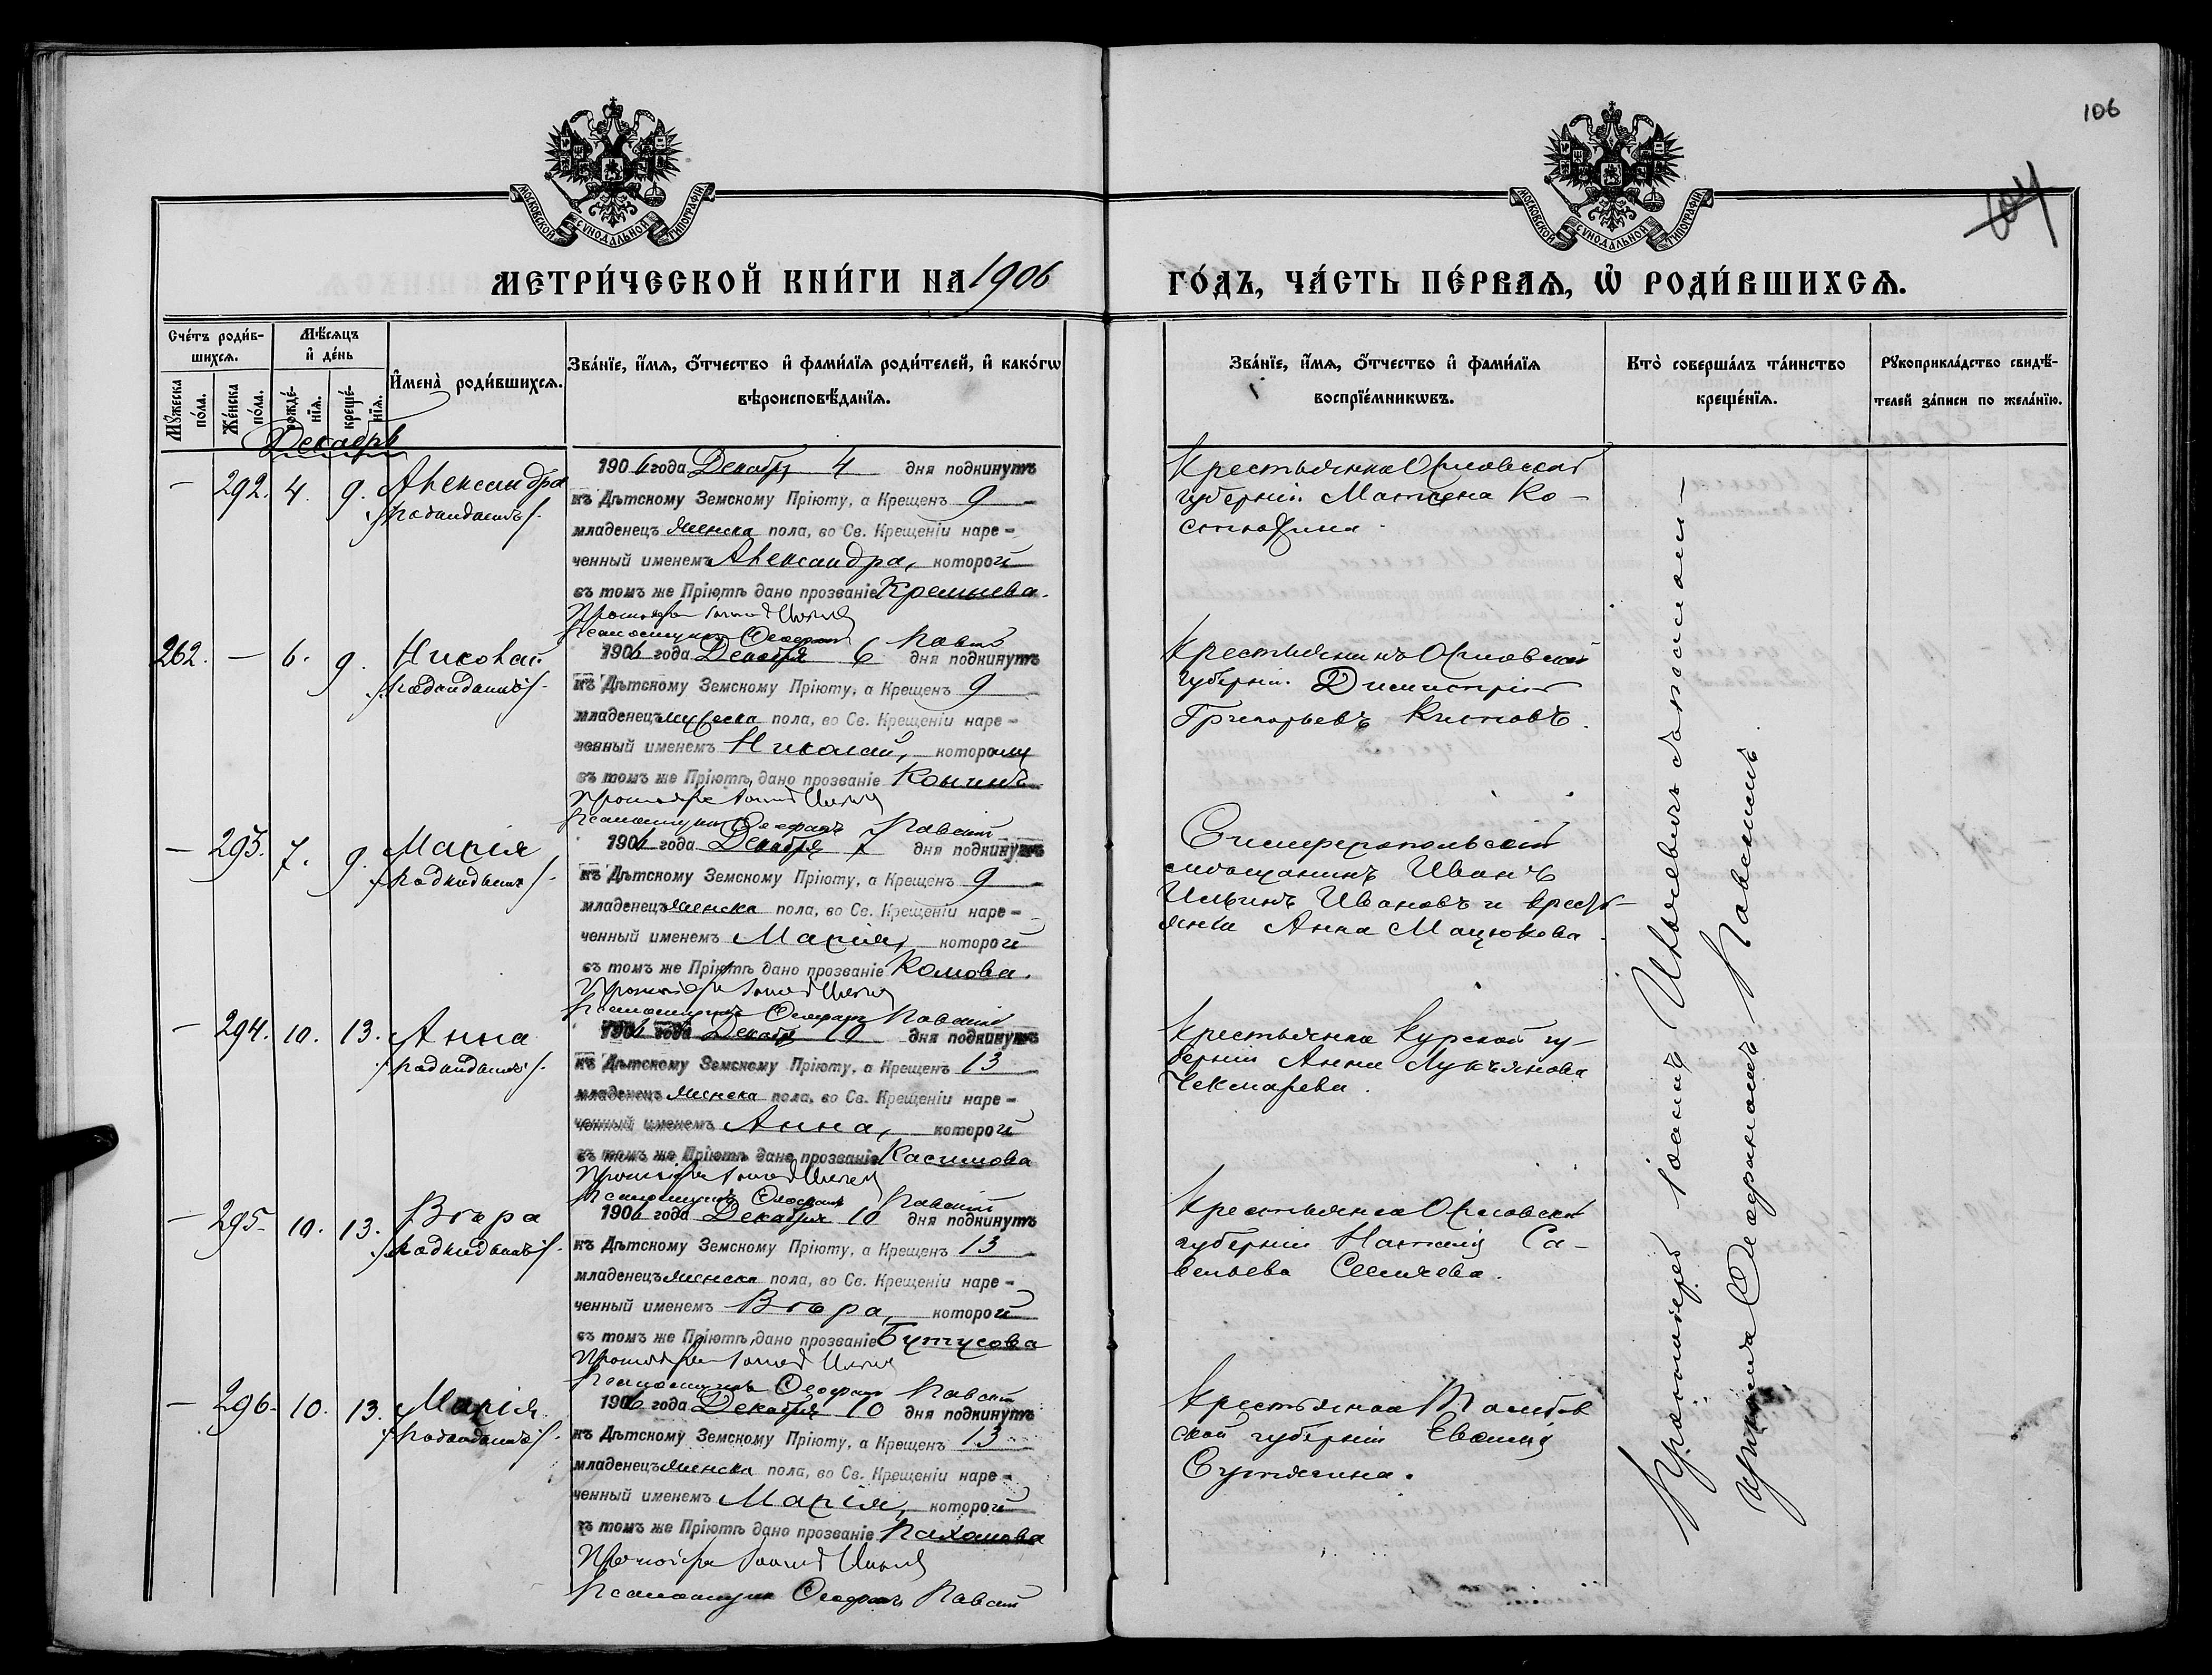 106
104
МОСКОВСКОЙ СУНОДАЛЬНОЙ ТИПОГРАФІИ
МОСКОВСКОЙ СУНОДАЛЬНОЙ ТИПОГРАФІИ
МЕТРИ́ЧЕСКОЙ КНИ́ГИ НА 1906 ГО́ДЪ, ЧА́СТЬ ПЕ́РВАѦ, Ѽ РОДИ́ВШИХСѦ.
Сче́тъ роди́в-
шихсѧ.
Мꙋ́жеска по́ла.
Же́нска по́ла.
Мѣ́сѧцъ и҆ де́нь
рожде́-
нїѧ.
креще́-
нїѧ.
И҆мена̀ роди́вшихсѧ.
Зва́нїе, и҆́мѧ, ѻ҆́тчество и҆ фами́лїѧ роди́телей, и҆ како́гѡ
вѣроисповѣ́данїѧ.
Зва́нїе, и҆́мѧ, ѻ҆́тчество и҆ фами́лїѧ
воспрїе́мникѡвъ.
Кто̀ соверша́лъ та́инство
креще́нїѧ.
Рꙋкоприкла́дство свидѣ́-
телей за́писи по жела́нїю.
Декабрь
— 292. 4. 9. Александра
/подкидышъ/.
1906 года Декабря 4 дня подкинутъ
къ Дѣтскому Земскому Пріюту, а Крещенъ 9
младенецъ женска пола, во Св. Крещеніи наре-
ченный именемъ Александра, которой
въ томъ же Пріютѣ дано прозваніе Кремнева.
Протоіерей Іоаннъ
Псаломщикъ Ѳеофанъ Павскій
Крестьянка Орловской
губерніи Матрена Ко-
стюхина.
262. — 6. 9. Николай
/подкидышъ/.
1906 года Декабря 6 дня подкинутъ
къ Дѣтскому Земскому Пріюту, а Крещенъ 9
младенецъ мужеска пола, во Св. Крещеніи наре-
ченный именемъ Николай, которому
въ томъ же Пріютѣ, дано прозваніе Конинъ
Протоіерей Іоаннъ
Псаломщикъ Ѳеофанъ Павскій
Крестьянинъ Орловской
губерніи Димитрій
Григорьевъ Китовъ.
— 293. 7. 9. Марія
/подкидышъ/.
1906 года Декабря 7 дня подкинутъ
къ Дѣтскому Земскому Пріюту, а Крещенъ 9
младенецъ женска пола, во Св. Крещеніи наре-
ченный именемъ Марія, которой
въ томъ же Пріютѣ дано прозваніе Комова.
Протоіерей Іоаннъ
Псаломщикъ Ѳеофанъ Павскій
Симферопольскій
мѣщанинъ Иванъ
Ильинъ Ивановъ и кресть-
янка Анна Мацюкова.
— 294. 10. 13. Анна
/подкидышъ/.
1906 года Декабря 10 дня подкинутъ
къ Дѣтскому Земскому Пріюту, а Крещенъ 13
младенецъ женска пола, во Св. Крещеніи наре-
ченный именемъ Анна, которой
въ томъ же Пріютѣ дано прозваніе Касимова
Протоіерей Іоаннъ
Псаломщикъ Ѳеофанъ Павскій
Крестьянка Курской гу-
берніи Анна Лукъянова
Чекмарева.
— 295. 10. 13. Вѣра
/подкидышъ/.
1906 года Декабря 10 дня подкинутъ
къ Дѣтскому Земскому Пріюту, а Крещенъ 13
младенецъ женска пола, во Св. Крещеніи наре-
ченный именемъ Вѣра, которой
въ томъ же Пріютѣ, дано прозваніе Бутусова
Протоіерей Іоаннъ
Псаломщикъ Ѳеофанъ Павскій
Крестьянка Орловской
губерніи Наталія Са-
вельева
— 296. 10. 13. Марія
/подкидышъ/.
1906 года Декабря 10 дня подкинутъ
къ Дѣтскому Земскому Пріюту, а Крещенъ 13
младенецъ женска пола, во Св. Крещеніи наре-
ченный именемъ Марія, которой
въ томъ же Пріютѣ дано прозваніе Пахомова
Протоіерей Іоаннъ
Псаломщикъ Ѳеофанъ Павскій
Крестьянка Тамбов
ской губерніи
Сутягина.
Протоіерей Іоаннъ съ псаломщ—
Ѳеофаномъ Павскимъ.